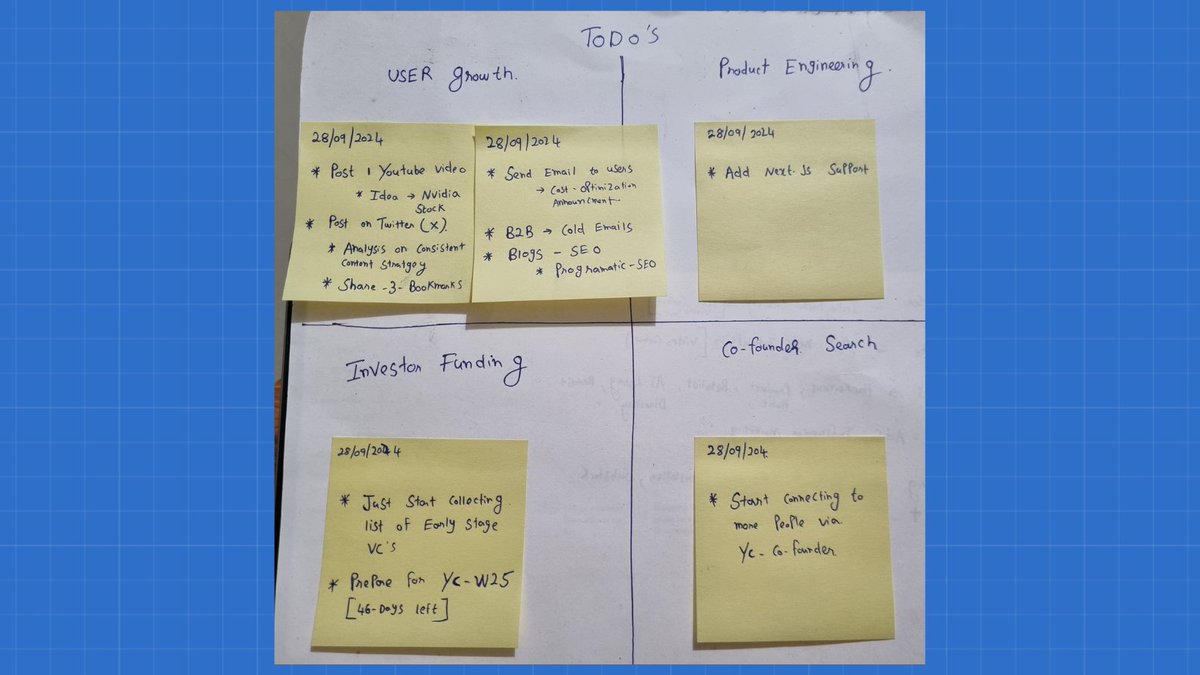 ToDo's
USER Growth.
28/09/2024
* Post 1 Youtube video
* Idea → Nvidia
Stock
* Post on Twitter (X)
* Analysis on Consistent
Content Stratgoy
* Share -3- Bookmarks
28/09/2024
* Send Email to users
→ Cost-Optinization
Announcment.
* B2B → Cold Emails
* Blogs - SEO
* Programatic-SEO
Product Engineering.
28/09/2024
* Add Next.Js Support
Investor Funding
28/09/2024
* Just Start Collecting
list of Early Stage
VC's
* Prepare for YC-W25
[46-Days left]
Co-founder Search
28/09/204
* Start Connecting to
more People via
Yc-Co-founder